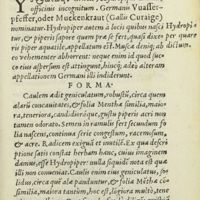 officinis incognitum. Germanis Vuasser-
pfeffer, oder Muckenkraut (Gallis Curaige)
nominatur. Hydropiper autem à locis quibus nasci Hydropi
&, & piperis sapore quem præ se fert, quasi dixe- per quare
ris piper aquatile, appellatum est. Musca deniq; ab dictum.
eo vehementer abhorret: neque enim id quicquid
eius succo inunctum fuerit, attingit, unde & nomen
appellationem Germani illi indiderunt.
FORMA.
Caulem ædit geniculatum, robustū, circa quem
alarū concauitates, & folia Menthæ similia, maio-
ra, teneriora, candidioraque, gustu piperis acri non
tamen odorato. Semen in ramulis fert secundum fo
lia nascens, continua serie congestum, racemosum,
& acre. Radicem exiguā et inutilē. Ex qua descri
ptione satis constat herbam hanc, cuius imaginem
damus, esse Hydropiper: nulla siquidem nota est quæ
illi non conueniat. Caulis enim eius geniculatus, so-
lidus, circa quē alæ panduntur, & folia Mentha
similia, maiora tamen, hoc est, longiora multò, tene